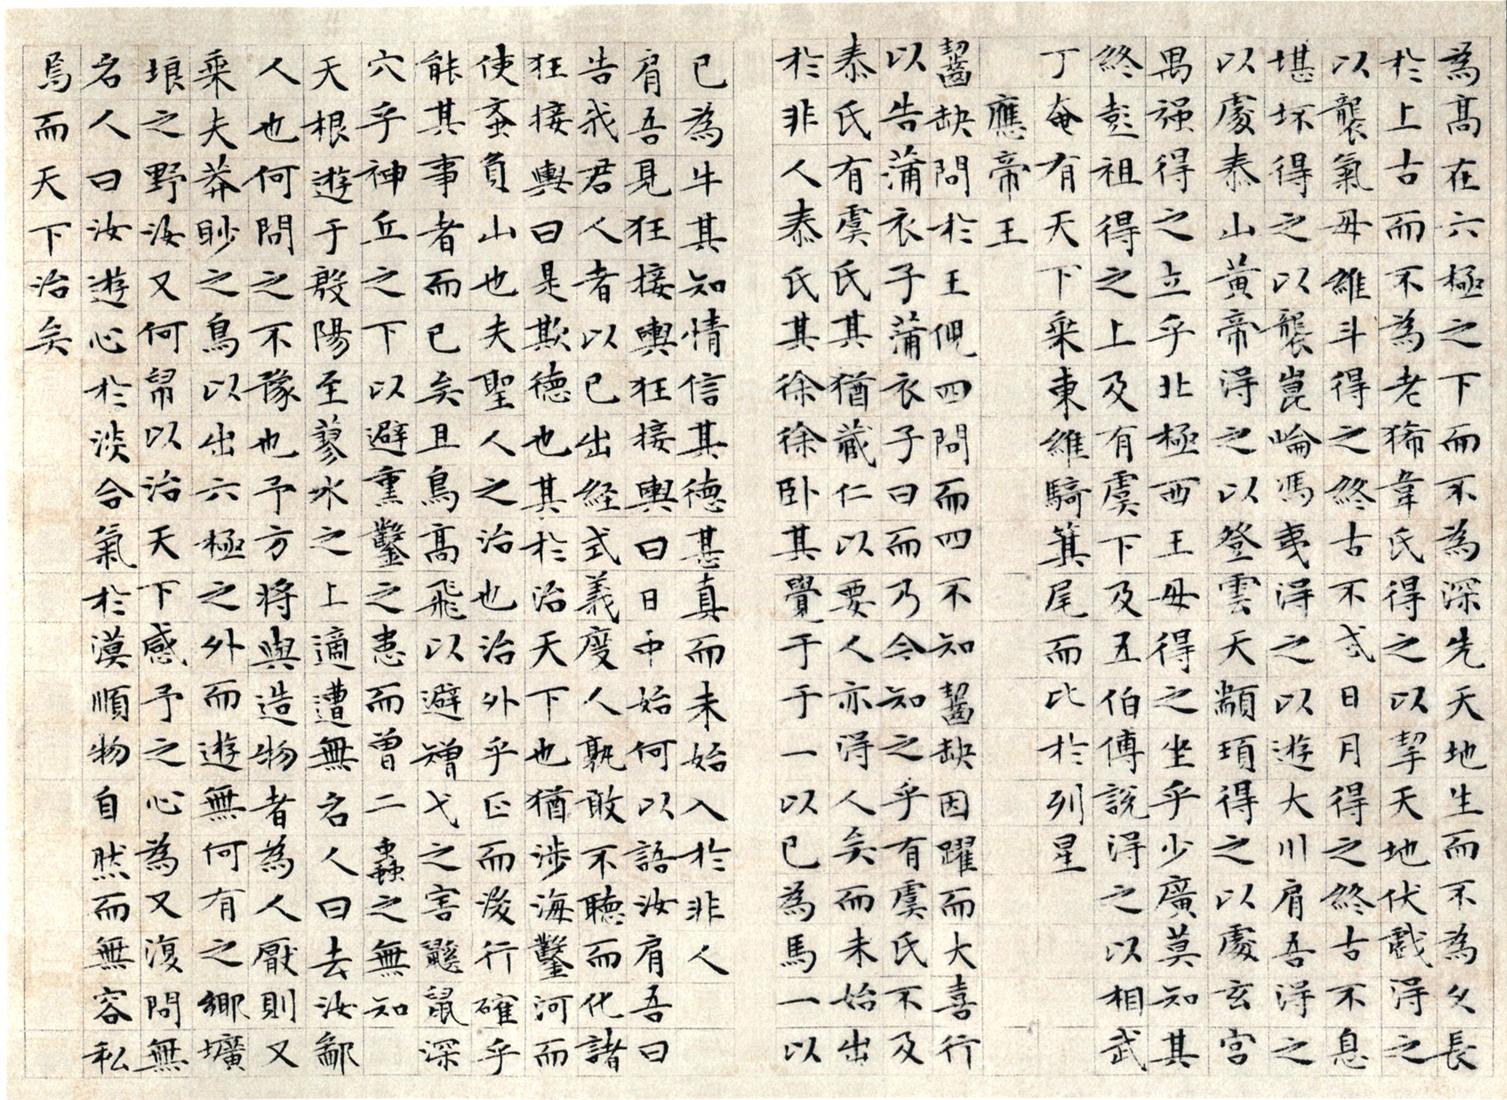 為高在六極之下而不為深先天地生而不為久長
於上古而不為老狶韋氏得之以挈天地伏戲得之
以襲氣母維斗得之終古不忒日月得之終古不息
堪坏得之以襲崑崘馮夷得之以遊大川肩吾得之
以處泰山黃帝得之以登雲天顓頊得之以處玄宮
禺强得之立乎北極西王母得之坐乎少廣莫知其
終彭祖得之上及有虞下及五伯傅說得之以相武
丁奄有天下乘東維騎箕尾而比於列星
應帝王
齧缺問於王倪四問而四不知齧缺因躍而大喜行
以告蒲衣子蒲衣子曰而乃今知之乎有虞氏不及
泰氏有虞氏其猶藏仁以要人亦得人矣而未始出
於非人泰氏其徐徐卧其覺于于一以已為馬一以
已為牛其知情信其德甚真而未始入於非人
肩吾見狂接輿狂接輿曰日中始何以語汝肩吾曰
告我君人者以已出經式義度人孰敢不聽而化諸
狂接輿曰是欺德也其於治天下也猶涉海鑿河而
使蚉負山也夫聖人之治也治外乎正而後行確乎
能其事者而已矣且鳥高飛以避矰弋之害鼷鼠深
穴乎神丘之下以避熏鑿之患而曾二蟲之無知
天根遊于殷陽至蓼水之上適遭無名人曰去汝鄙
人也何問之不豫也予方將與造物者為人厭則又
乘夫莽眇之鳥以出六極之外而遊無何有之鄉壙
埌之野汝又何帠以治天下感予之心為又復問無
名人曰汝遊心於淡合氣於漠順物自然而無容私
焉而天下治矣